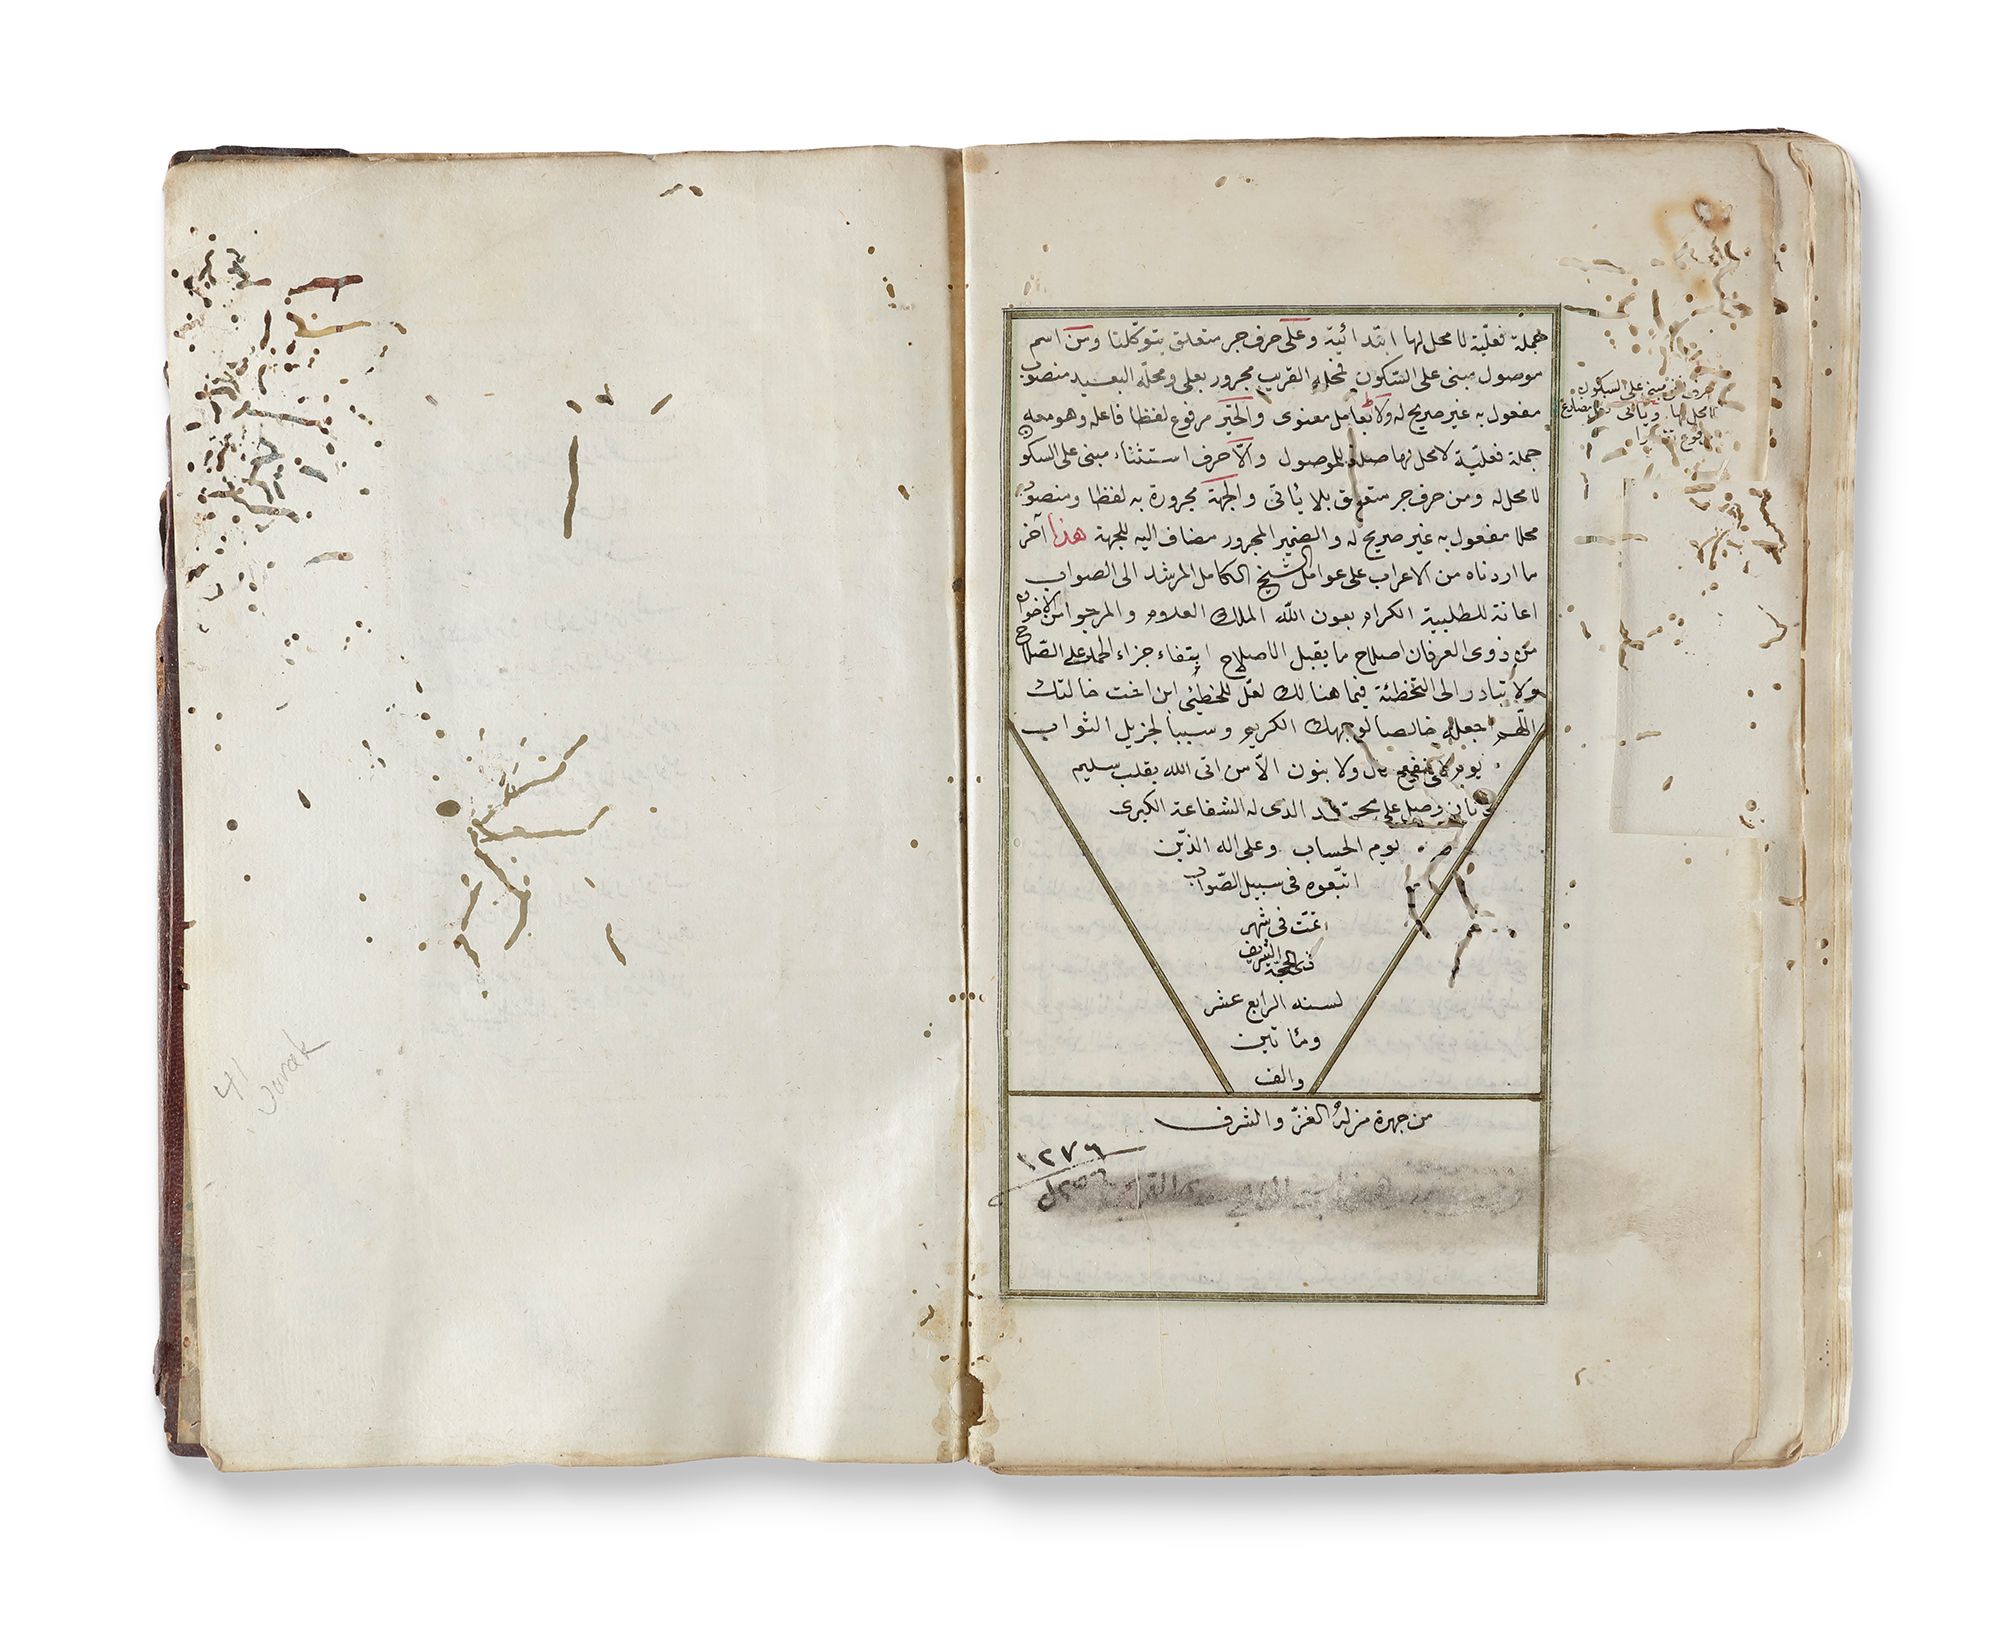 جملة فعليّة لا محل لها ابتدائية وعلى حرف جر متعلق بتوكلنا ومن اسم
موصول مبنى على السّكون فمحله القريب مجرور بعلى ومحله البعيد منصوب
مفعول به غير صريح له ولا بعامل معنوى والخير مرفوع لفظا فاعله وهو معه
جملة فعليّة لا محل لها صلة للموصول والّا حرف استثناء مبنى على السكون
لا محل له ومن حرف جر متعلق بلا يأتى والجهة مجرورة به لفظا ومنصوب
محلا مفعول به غير صريح له والضمير المجرور مضاف اليه للجهة هذا آخر
ما اردناه من الاعراب على عوامل الشيخ الكامل المرشد الى الصواب
اعانة للطلبة الكرام بعون الله الملك العلام والمرجو من الاخوان
من ذوى العرفان اصلاح ما يقبل الاصلاح ابتغاء جزاء الحمد على الصّلاح
ولا تبادر الى التخطئة فيما هنالك لعلّ المخطئ ابن اخت خالتك
اللّهم اجعله خالصا لوجهك الكريم وسببا لجزيل الثواب
يوم لا ينفع مال ولا بنون الّا من اتى الله بقلب سليم
وصل على محمد الذى له الشفاعة الكبرى
يوم الحساب وعلى اله الذين
اتبّعوه فى سبيل الصّواب
تمّت فى شهر
ذى الحجّة الشريف
لسنه الرابع عشر
ومأتين
والف
من جهرة منزله العزّ والشرف
١٢٧٦
حرف نفى مبنى على السكون
لا محل لها ويأتى فعل مضارع
مرفوع تقديرا
41
Jorak